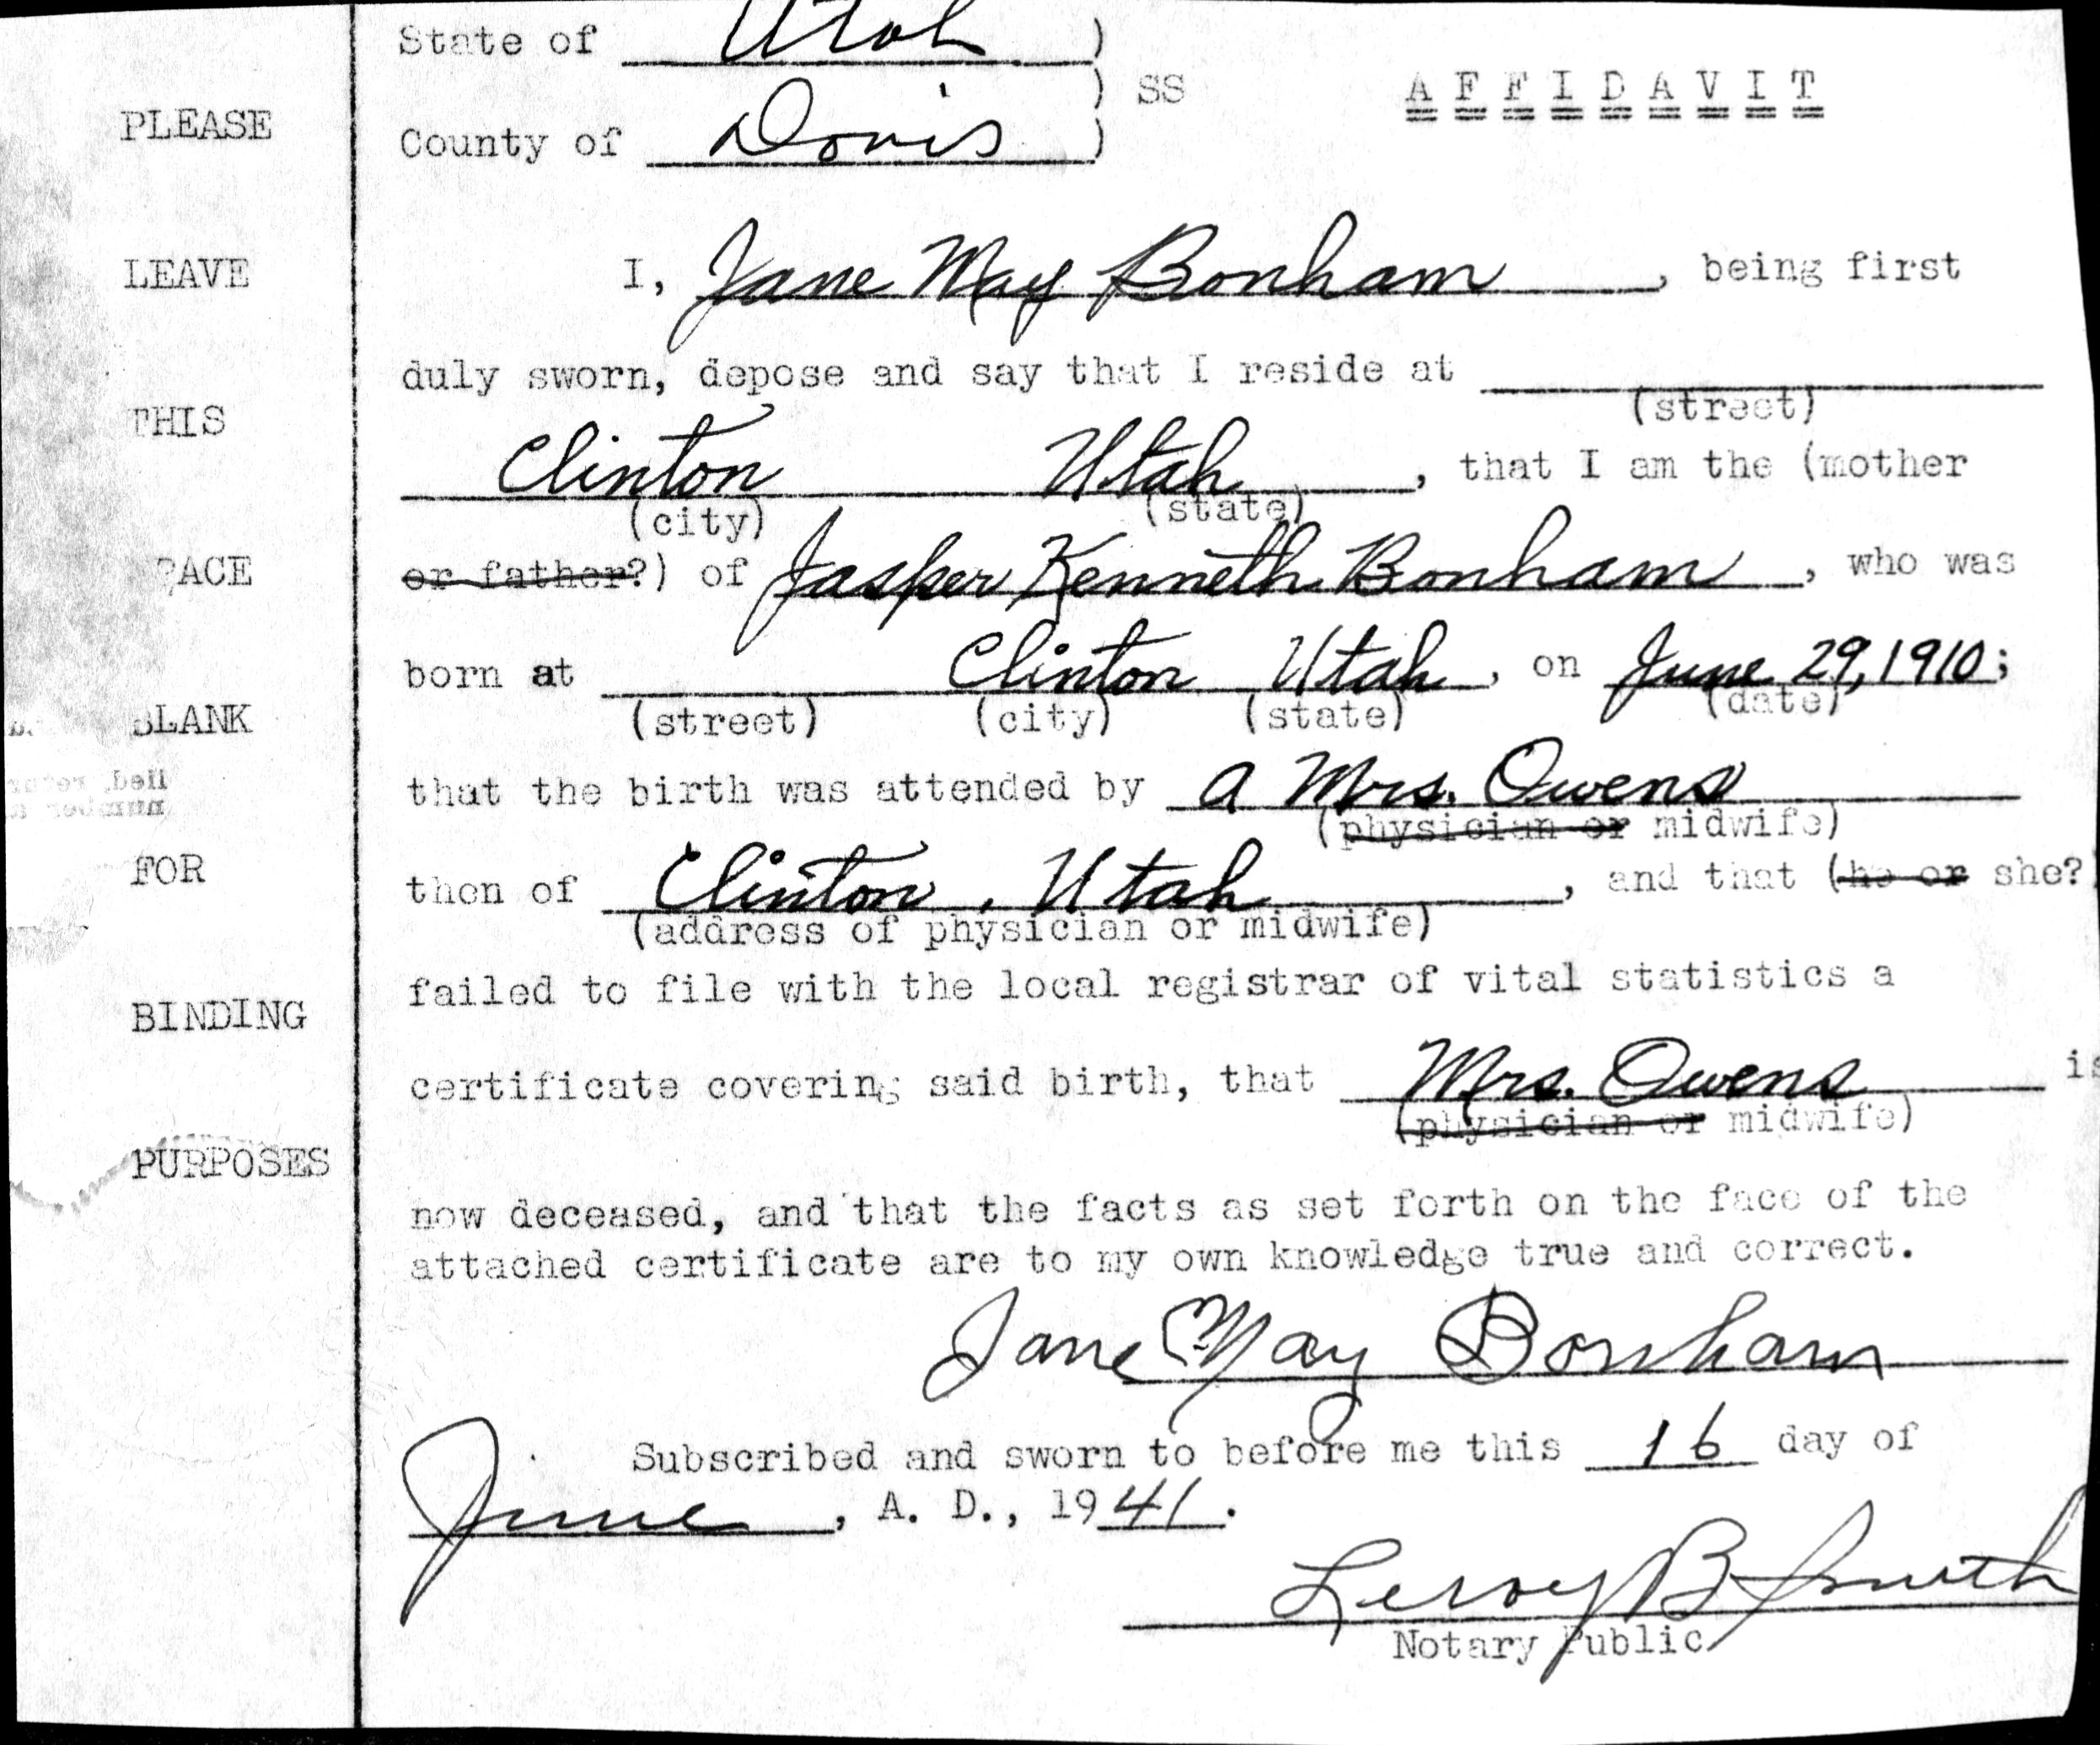 State of Utah )
) SS A F F I D A V I T
County of Davis )
PLEASE
LEAVE
THIS
PACE
BLANK
FOR
BINDING
PURPOSES
I, Jane May Bonham, being first
duly sworn, depose and say that I reside at
(street)
Clinton Utah, that I am the (mother
(city) (state)
or father?) of Jasper Kenneth Bonham, who was
born at Clinton Utah, on June 29, 1910;
(street) (city) (state) (date)
that the birth was attended by a Mrs. Owens
(physician or midwife)
then of Clinton, Utah, and that (he or she?
(address of physician or midwife)
failed to file with the local registrar of vital statistics a
certificate covering said birth, that Mrs. Owens is
(physician or midwife)
now deceased, and that the facts as set forth on the face of the
attached certificate are to my own knowledge true and correct.
Jane May Bonham
Subscribed and sworn to before me this 16 day of
June, A. D., 1941.
Leroy B Smith
Notary Public